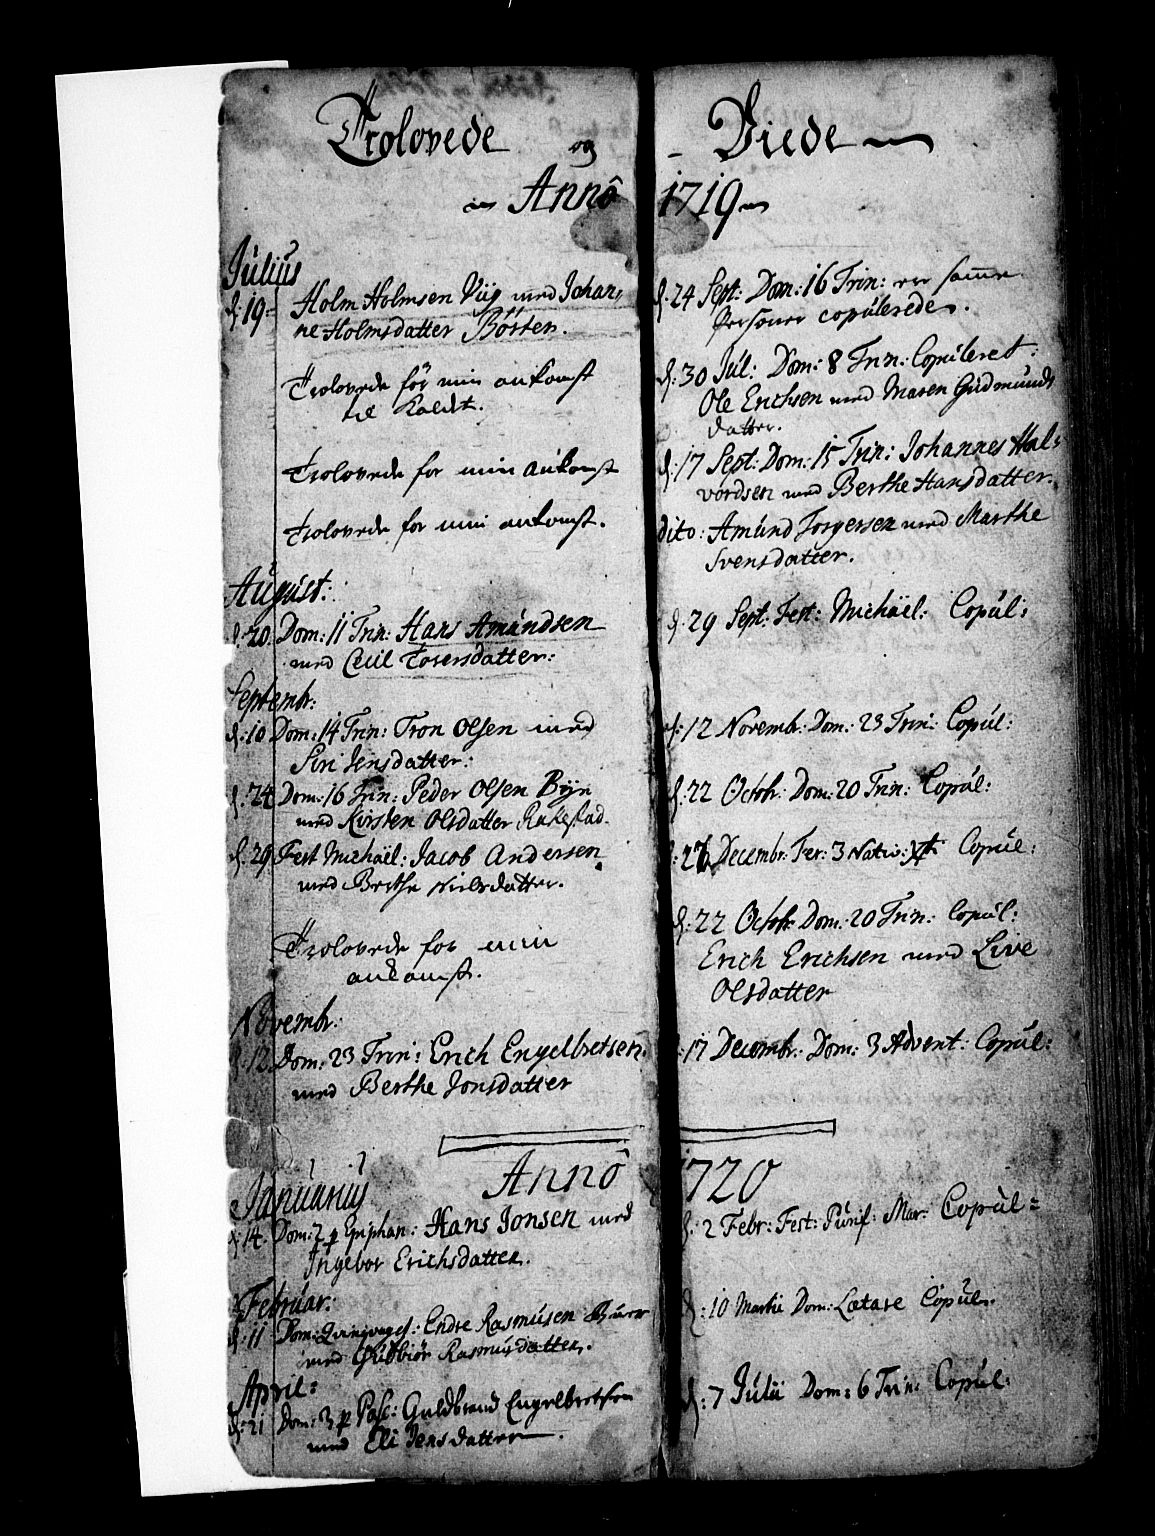 Trolovede og - Viede
Annô 1719
Julius
d: 19 Holm Holmsen Viig med Johan,
ne Holmsdatter Börsten.
d: 24 Sept: Dom: 16 Trin: er samme
Personer copulerede.
Trolovede för min ankomst
til Kaldt.
d: 30 Jul: Dom: 8 Trin: Copuleret:
Ole Erichsen med Maren Gudmunds
datter.
Trolovede for min ankomst
d: 17 Sept: Dom: 15 Trin: Johannes Hal-
vordsen med Berthe Hansdatter.
Trolovede for min ankomst.
dito: Amund Torgersen med Marthe
Svensdatter.
August:
d: 20. Dom: 11 Trin: Hans Amundsen
med Cecil Torersdatter:
d: 29 Sept: Fest: Michäel: Copul:
Septembr:
d: 10 Dom: 14 Trin: Tron Olsen med
Siri Jensdatter:
d: 12 Novembr: Dom: 23 Trin: Copul:
d: 24 Dom: 16 Trin: Peder Olsen Bÿe
med Kirsten Olsdatter Rakestad.
d: 22 Octobr: Dom: 20 Trin: Copul:
d: 29 Fest Michäel: Jacob Andersen
med Berthe Nielsdatter.
d: 27 Decembr: Fer: 3 Nativ: Xti Copul:
Trolovede for min
ankomst.
d: 22 Octobr: Dom: 20 Trin: Copul:
Erich Erichsen med Live
Olsdatter
Novembr:
d: 12. Dom: 23 Trin: Erich Engelbretsen
med Berthe Jonsdatter
d: 17 Decembr: Dom: 3 Advent: Copul:
Annô 1720
Januarius
d: 14. Dom: 2 p Epiphan: Hans Jonsen med
Ingebor Erichsdatter.
d: 2 Febr: Fest: Purif: Mar: Copul:
Februar:
d: 11 Dom: Qvinqvages: Endre Rasmusen
med Gubbiör Rasmusdatter.
d: 10 Martii Dom: Lætare Copul:
April:
d: 21 Dom: 3 p Pasc: Guldbrand Engelbretsen
med Eli Jensdatter.
d: 7 Julii Dom: 6 Trin: Copul: